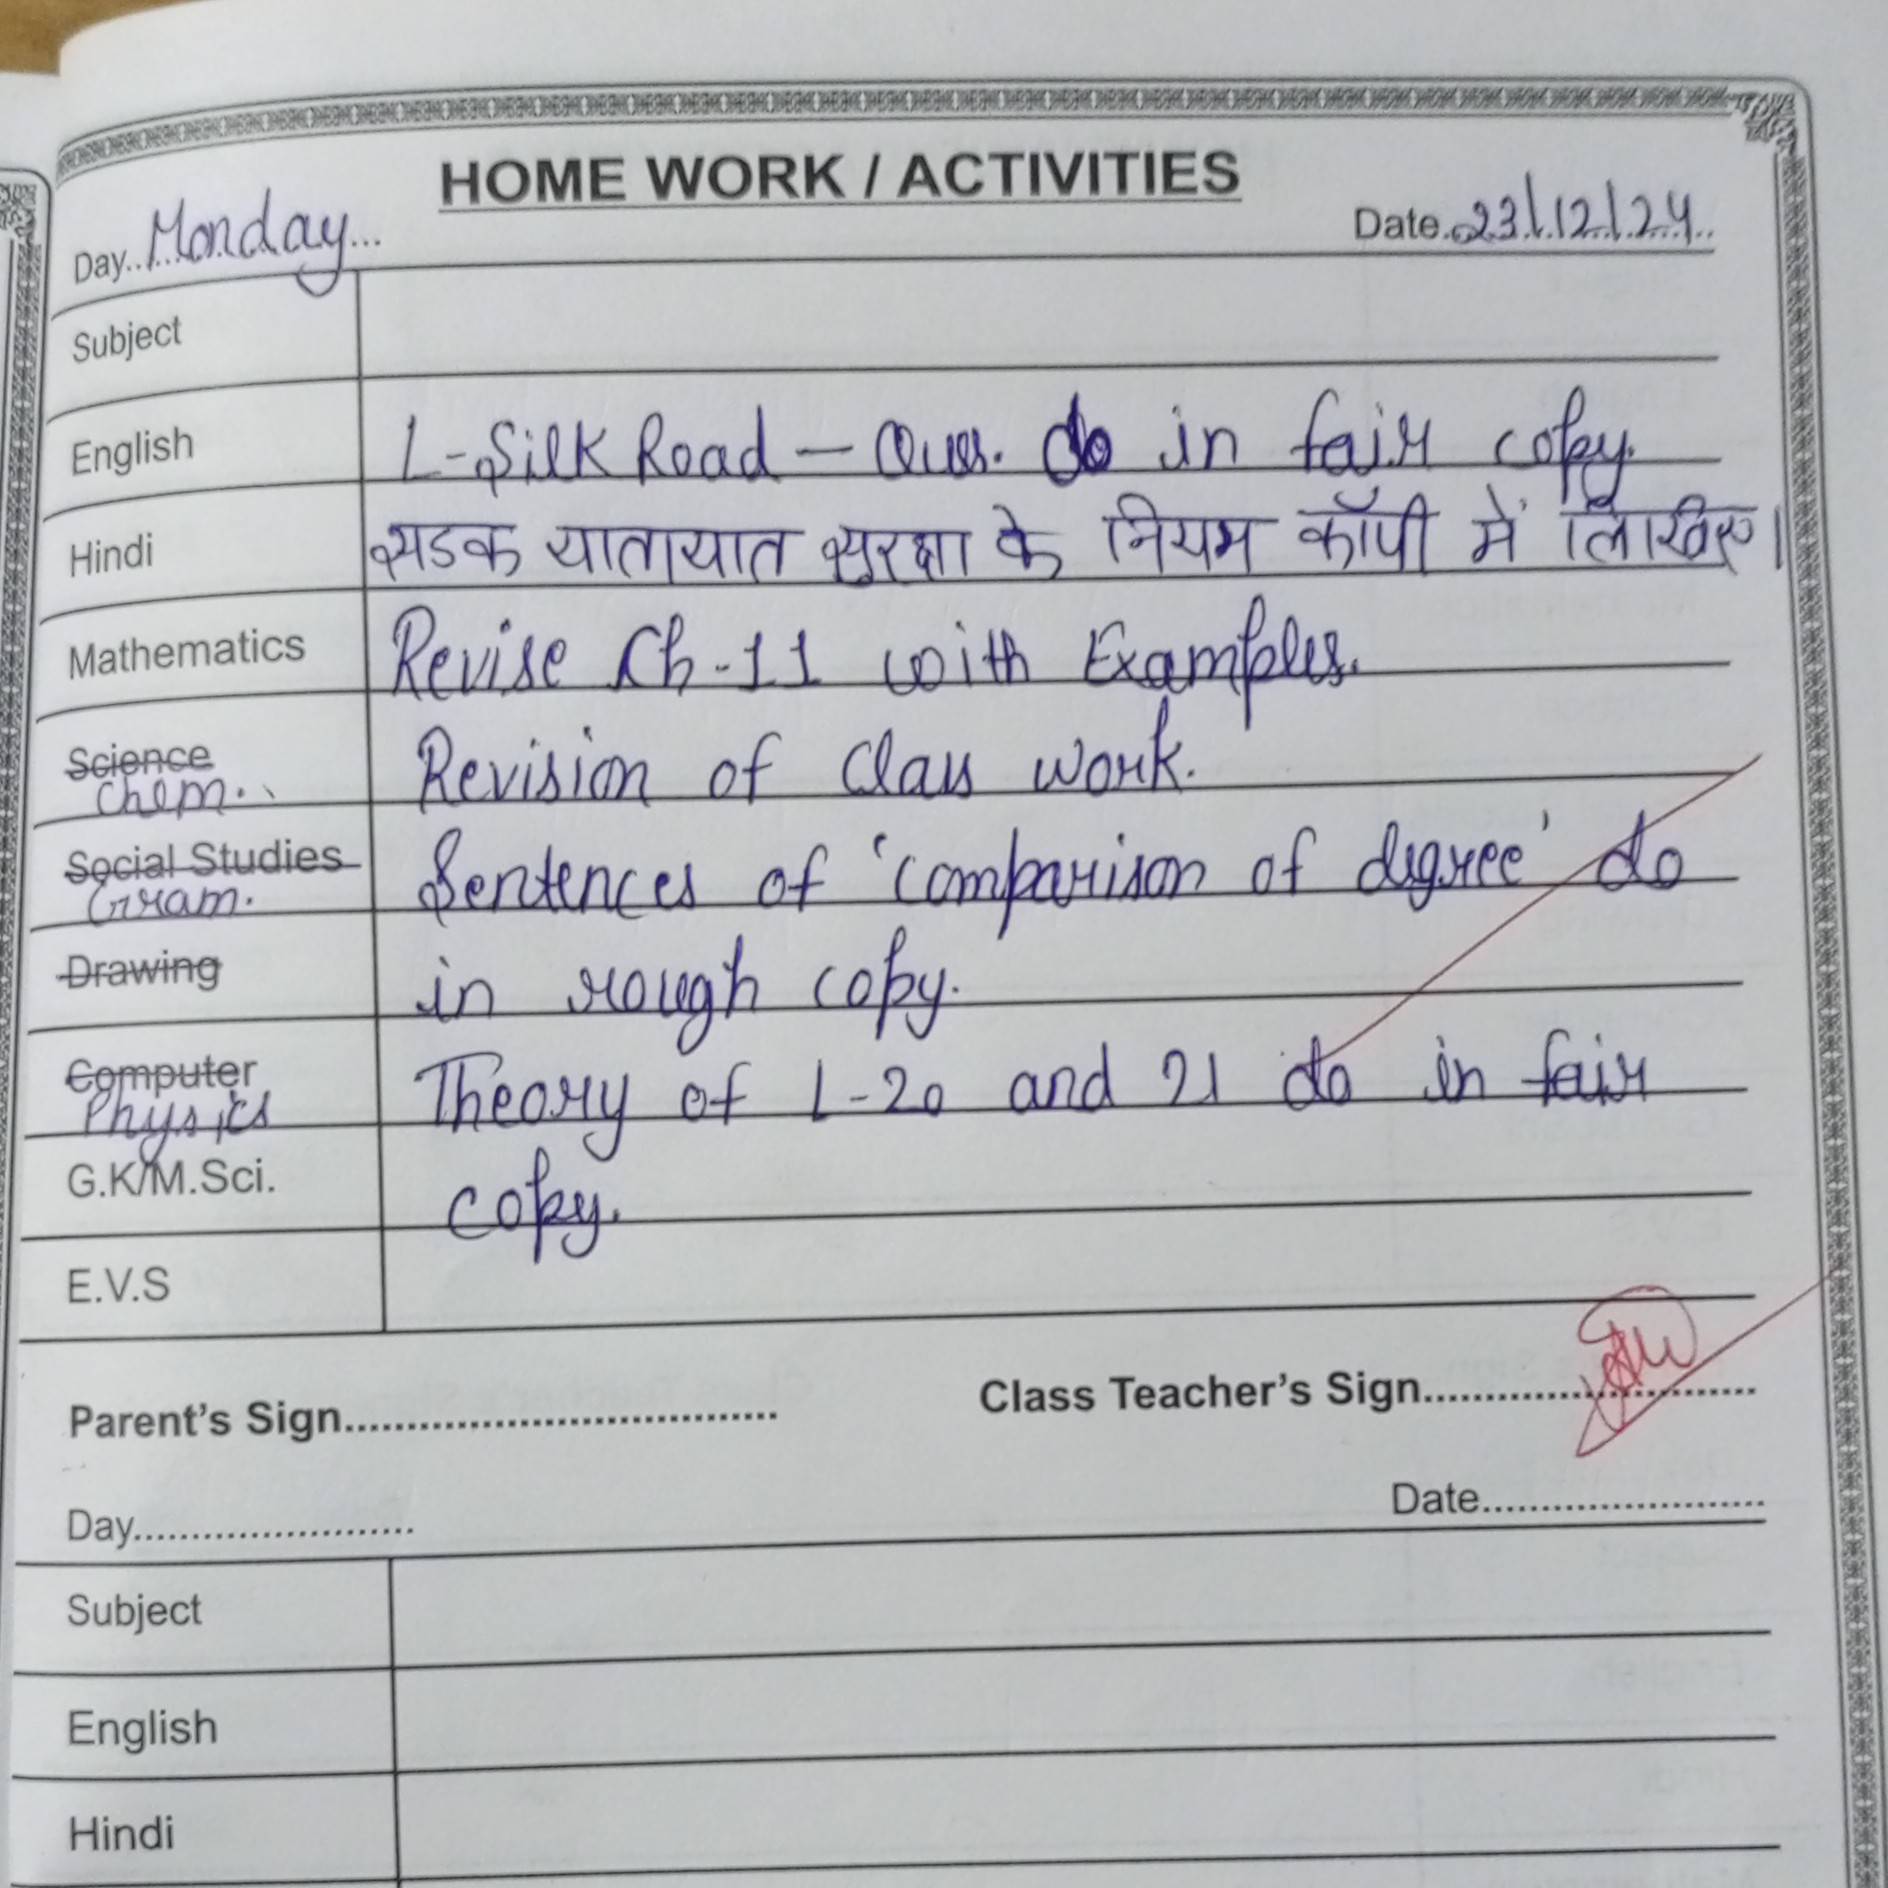 HOME WORK / ACTIVITIES
Day..Monday... Date.23/12/24..
Subject
English L-Silk Road - Ques. do in fair copy.
Hindi सडक यातायात सुरक्षा के नियम कॉपी में लिखिए।
Mathematics Revise Ch-11 with Examples.
Science
Chem. Revision of Class work.
Social Studies
Gram. Sentences of 'comparison of degree' do
Drawing in rough copy.
Computer
Physics Theory of L-20 and 21 do in fair
G.K/M.Sci. copy.
E.V.S
Parent's Sign.................................. Class Teacher's Sign...........................
Day....................... Date.......................
Subject
English
Hindi